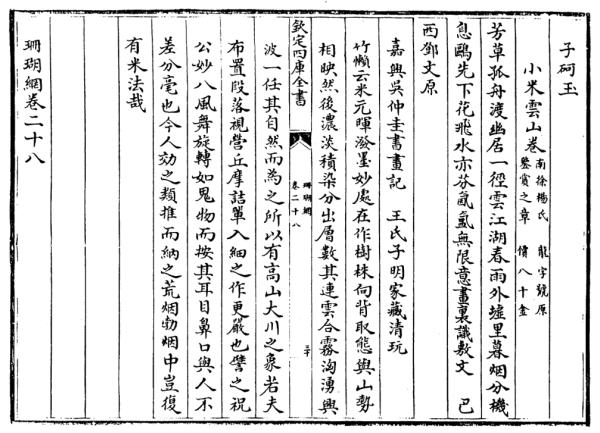 子砢玉
小米雲山卷 南徐楊氏 龍字號原
鑒賞之章 價八十金
芳草孤舟渡幽居一徑雲江湖春雨外墟里暮烟分機
息鷗先下花飛水亦芬氤氲無限意畫裏識敷文 巴
西鄧文原
嘉興吳仲圭書畫記 王氏子明家藏清玩
竹懶云米元暉潑墨妙處在作樹株向背取態與山勢
相映然後濃淡積染分出層數其連雲合霧洶湧興
欽定四庫全書
珊瑚網
卷二十八
三十
波一任其自然而為之所以有高山大川之象若夫
布置段落視營丘摩詰單入細之作更嚴也譬之祝
公妙八風舞旋轉如鬼物而按其耳目鼻口與人不
差分毫也今人効之類推而納之荒烟勃烟中豈復
有米法哉
珊瑚網卷二十八